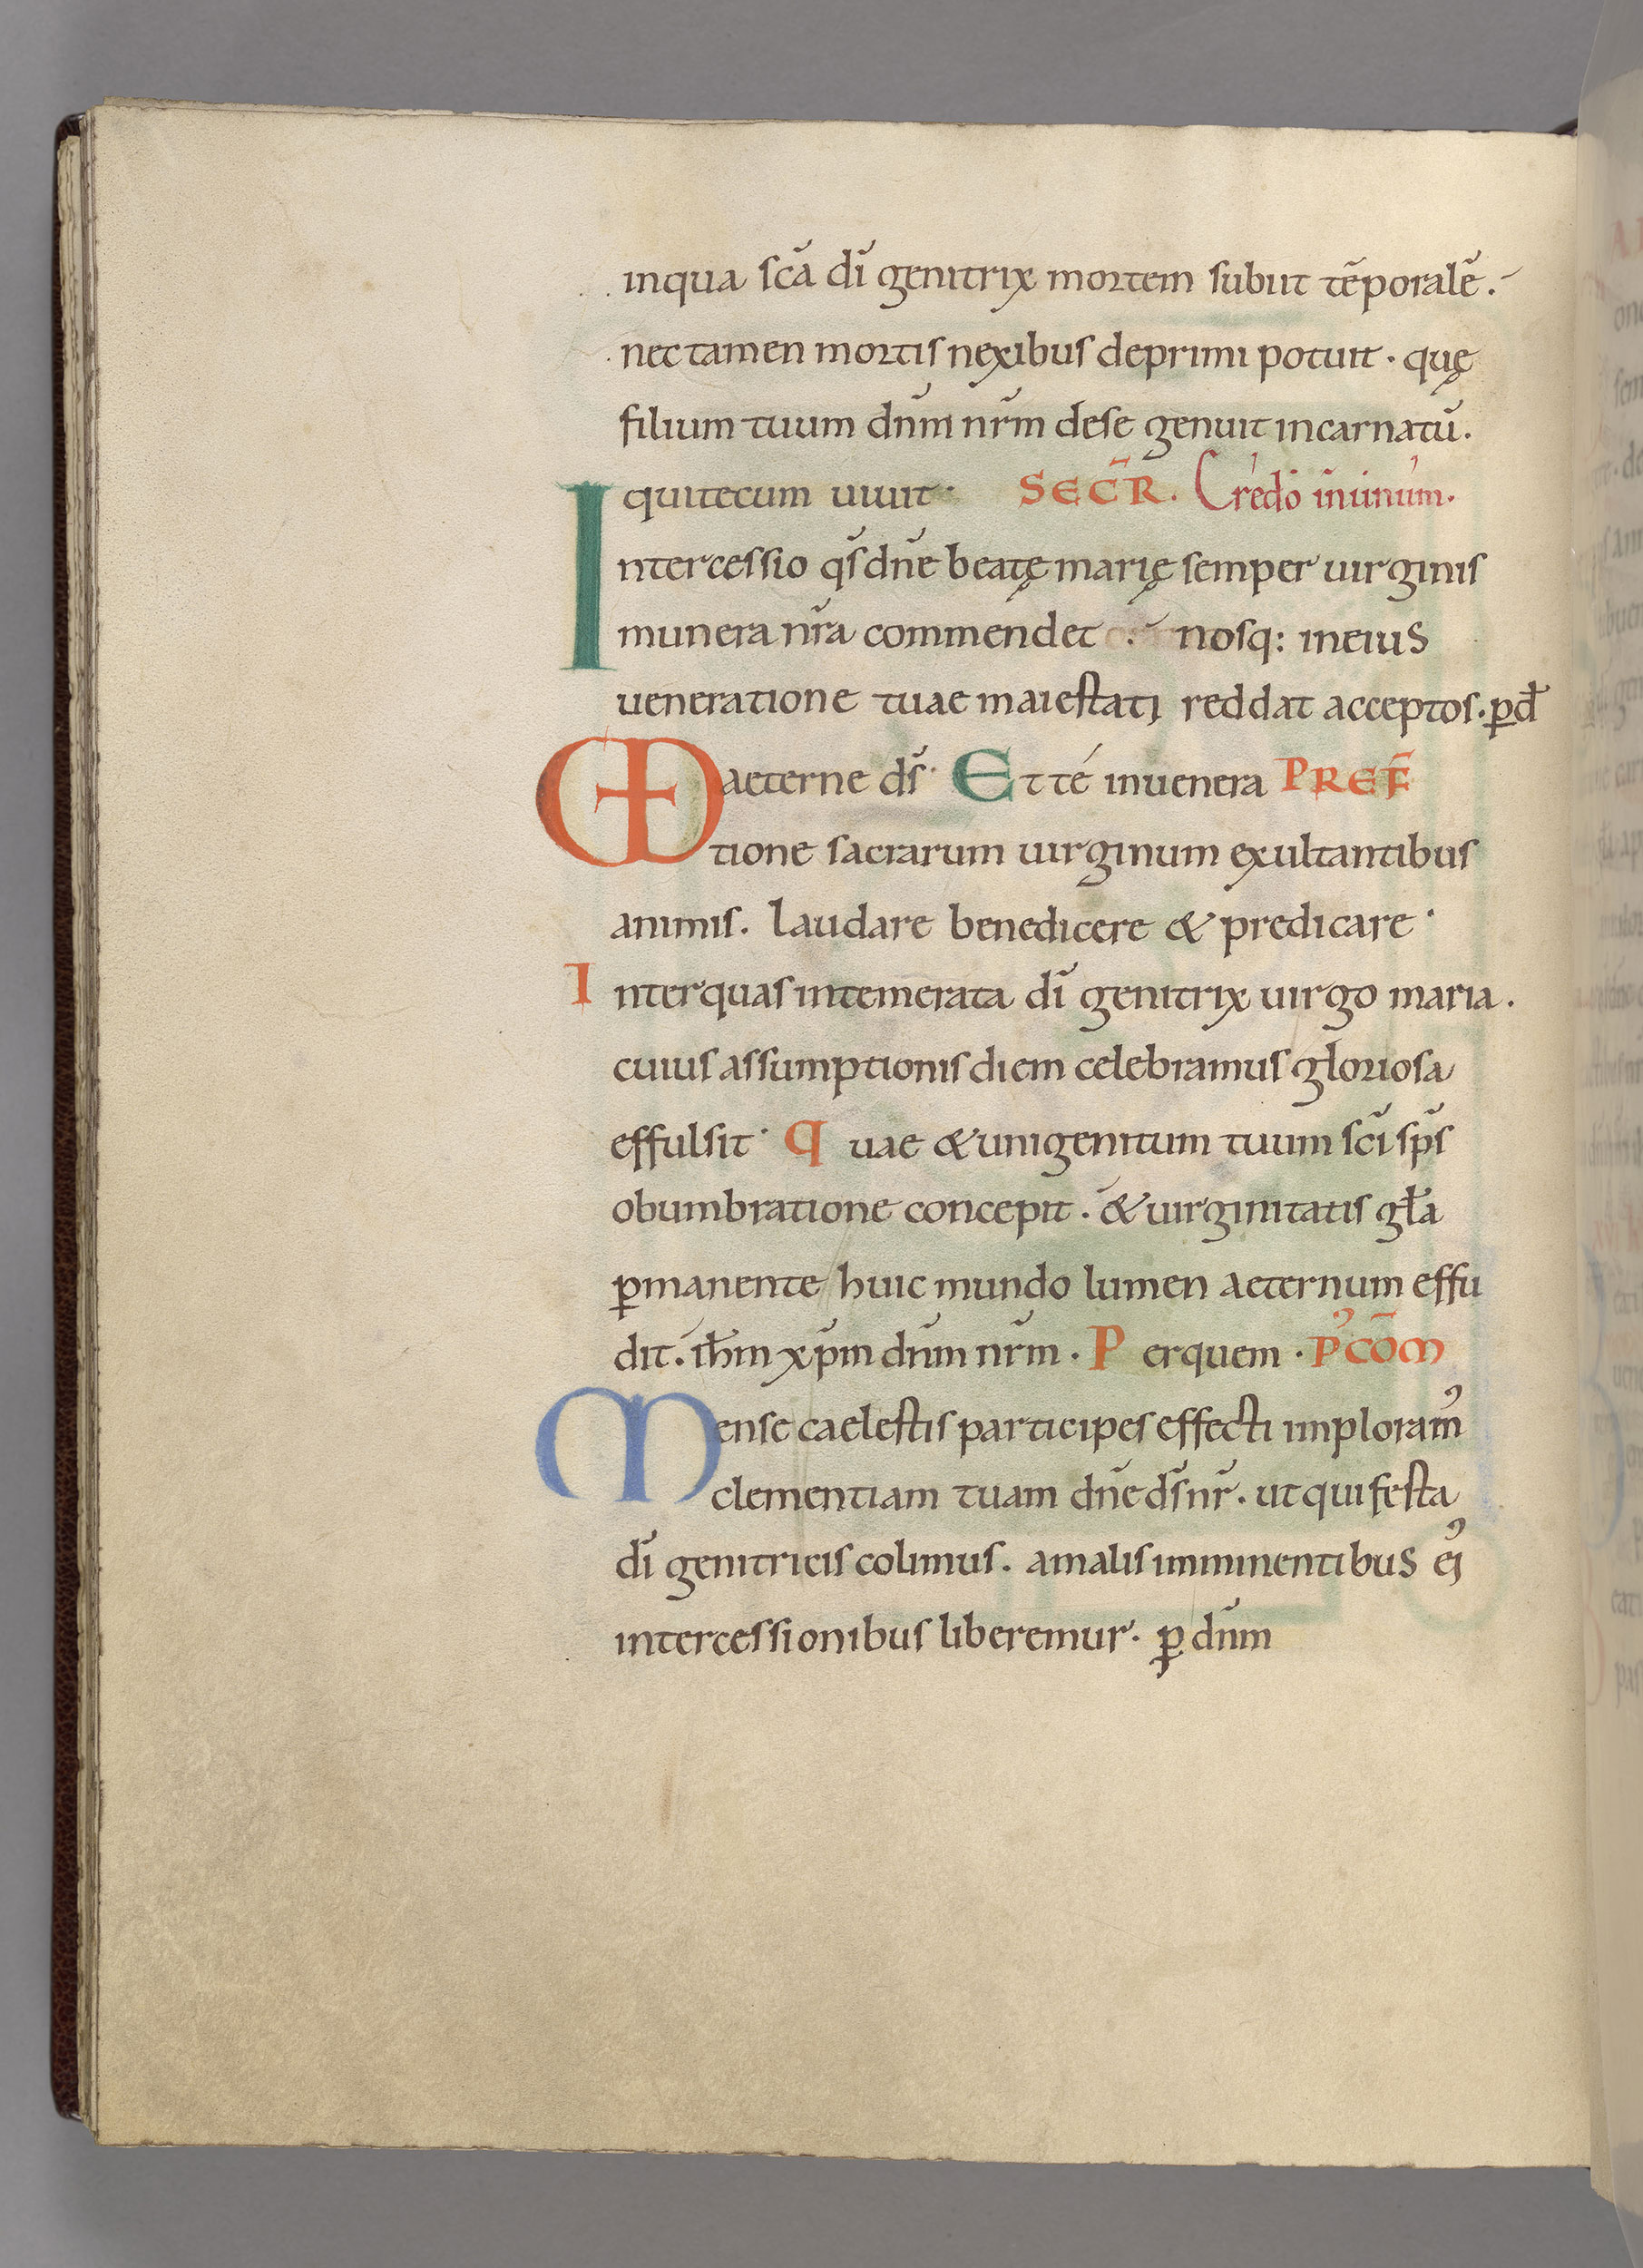 inqua scā dī genitrix mortem subiit tēporalē.
nec tamen mortis nexibus deprimi potuit. quę
filium tuum dn̄m nr̄m dese genuit incarnatū.
quitecum uiuit. SECR̄. Credo in unum.
Intercessio qs̄ dn̄e beatę marię semper uirginis
munera nr̄a commendet. nosq: ineius
ueneratione tuae maiestati reddat acceptos. ꝑ d̄
VD aeterne ds̄. Et té inuenera PREF̄
tione sacrarum uirginum exultantibus
animis. laudare benedicere & predicare.
Interquas intemerata dī genitrix uirgo maria.
cuius assumptionis diem celebramus gloriosa
effulsit. Quae & unigenitum tuum scī sps̄
obumbratione concepit. & uirginitatis gl̄a
ꝑmanente huic mundo lumen aeternum effu
dit. ih̄m xp̄m dn̄m nr̄m. Perquem. P᾽CŌM
Mense caelestis participes effecti imploram᾽
clementiam tuam dn̄e ds̄ nr̄. ut qui festa
dī genitricis colimus. amalis imminentibus ei᾽
intercessionibus liberemur. ꝑ dn̄m